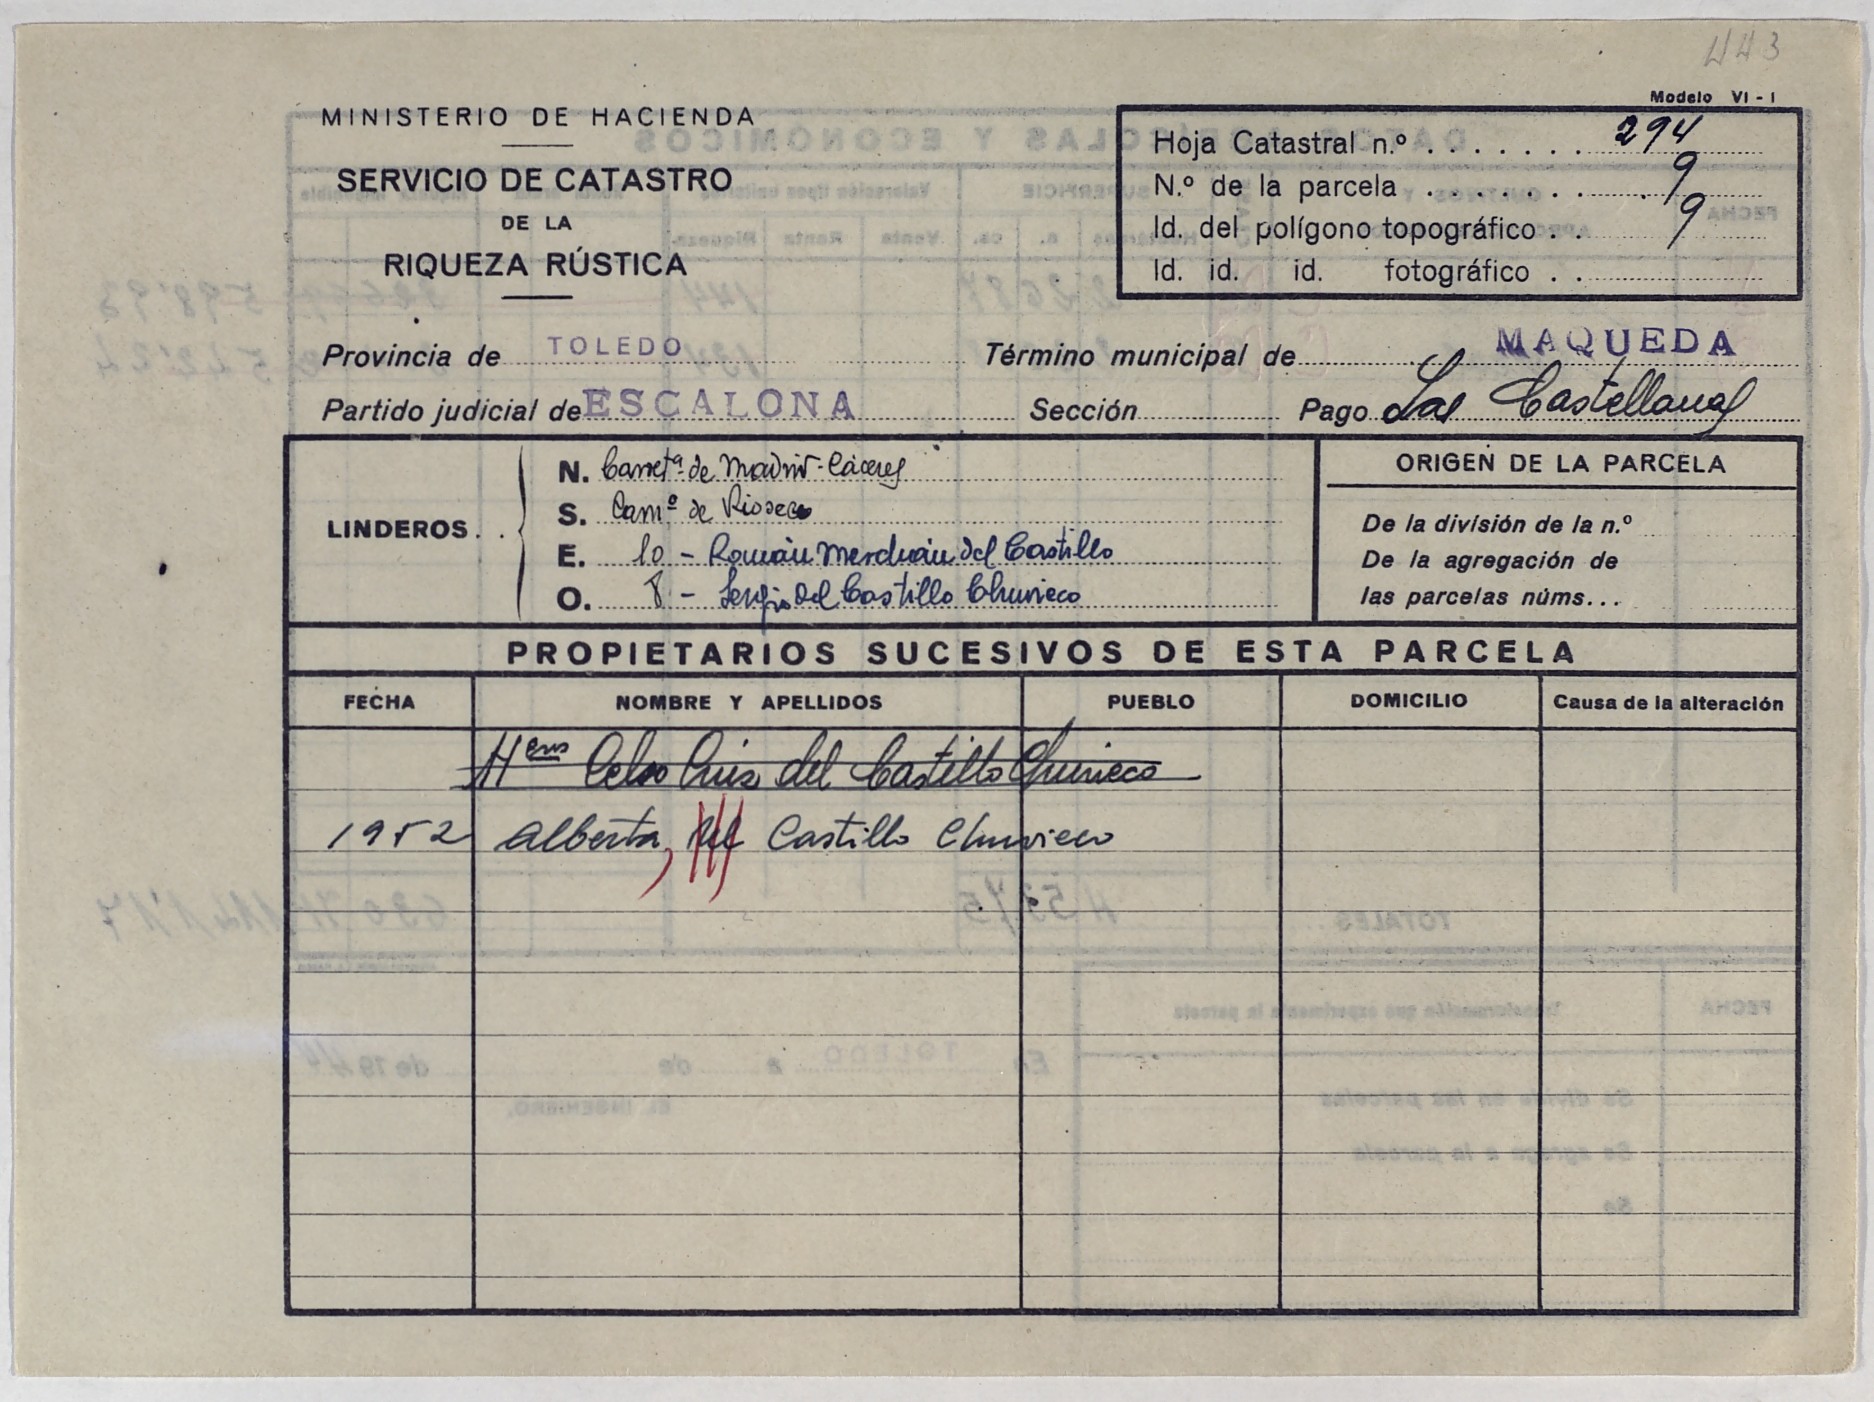 443
Modelo VI - I
MINISTERIO DE HACIENDA
SERVICIO DE CATASTRO
DE LA
RIQUEZA RÚSTICA
Hoja Catastral n.º . . . . . . . 294
N.º de la parcela . . . . . . . 9
Id. del polígono topográfico . . 9
Id. id. id. fotográfico . .
Provincia de TOLEDO Término municipal de MAQUEDA
Partido judicial de ESCALONA Sección Pago Las Castellanas
LINDEROS . .
N. Carretª de Madrid-Cáceres
S. Camº de Rioseco
E. 10 - Román Merchán del Castillo
O. 8 - Sergio del Castillo Chuvieco
ORIGEN DE LA PARCELA
De la división de la n.º
De la agregación de
las parcelas núms...
PROPIETARIOS SUCESIVOS DE ESTA PARCELA
FECHA NOMBRE Y APELLIDOS PUEBLO DOMICILIO Causa de la alteración
Hnos Celso Luis del Castillo Chuvieco
1952 Alberta, del Castillo Chuvieco